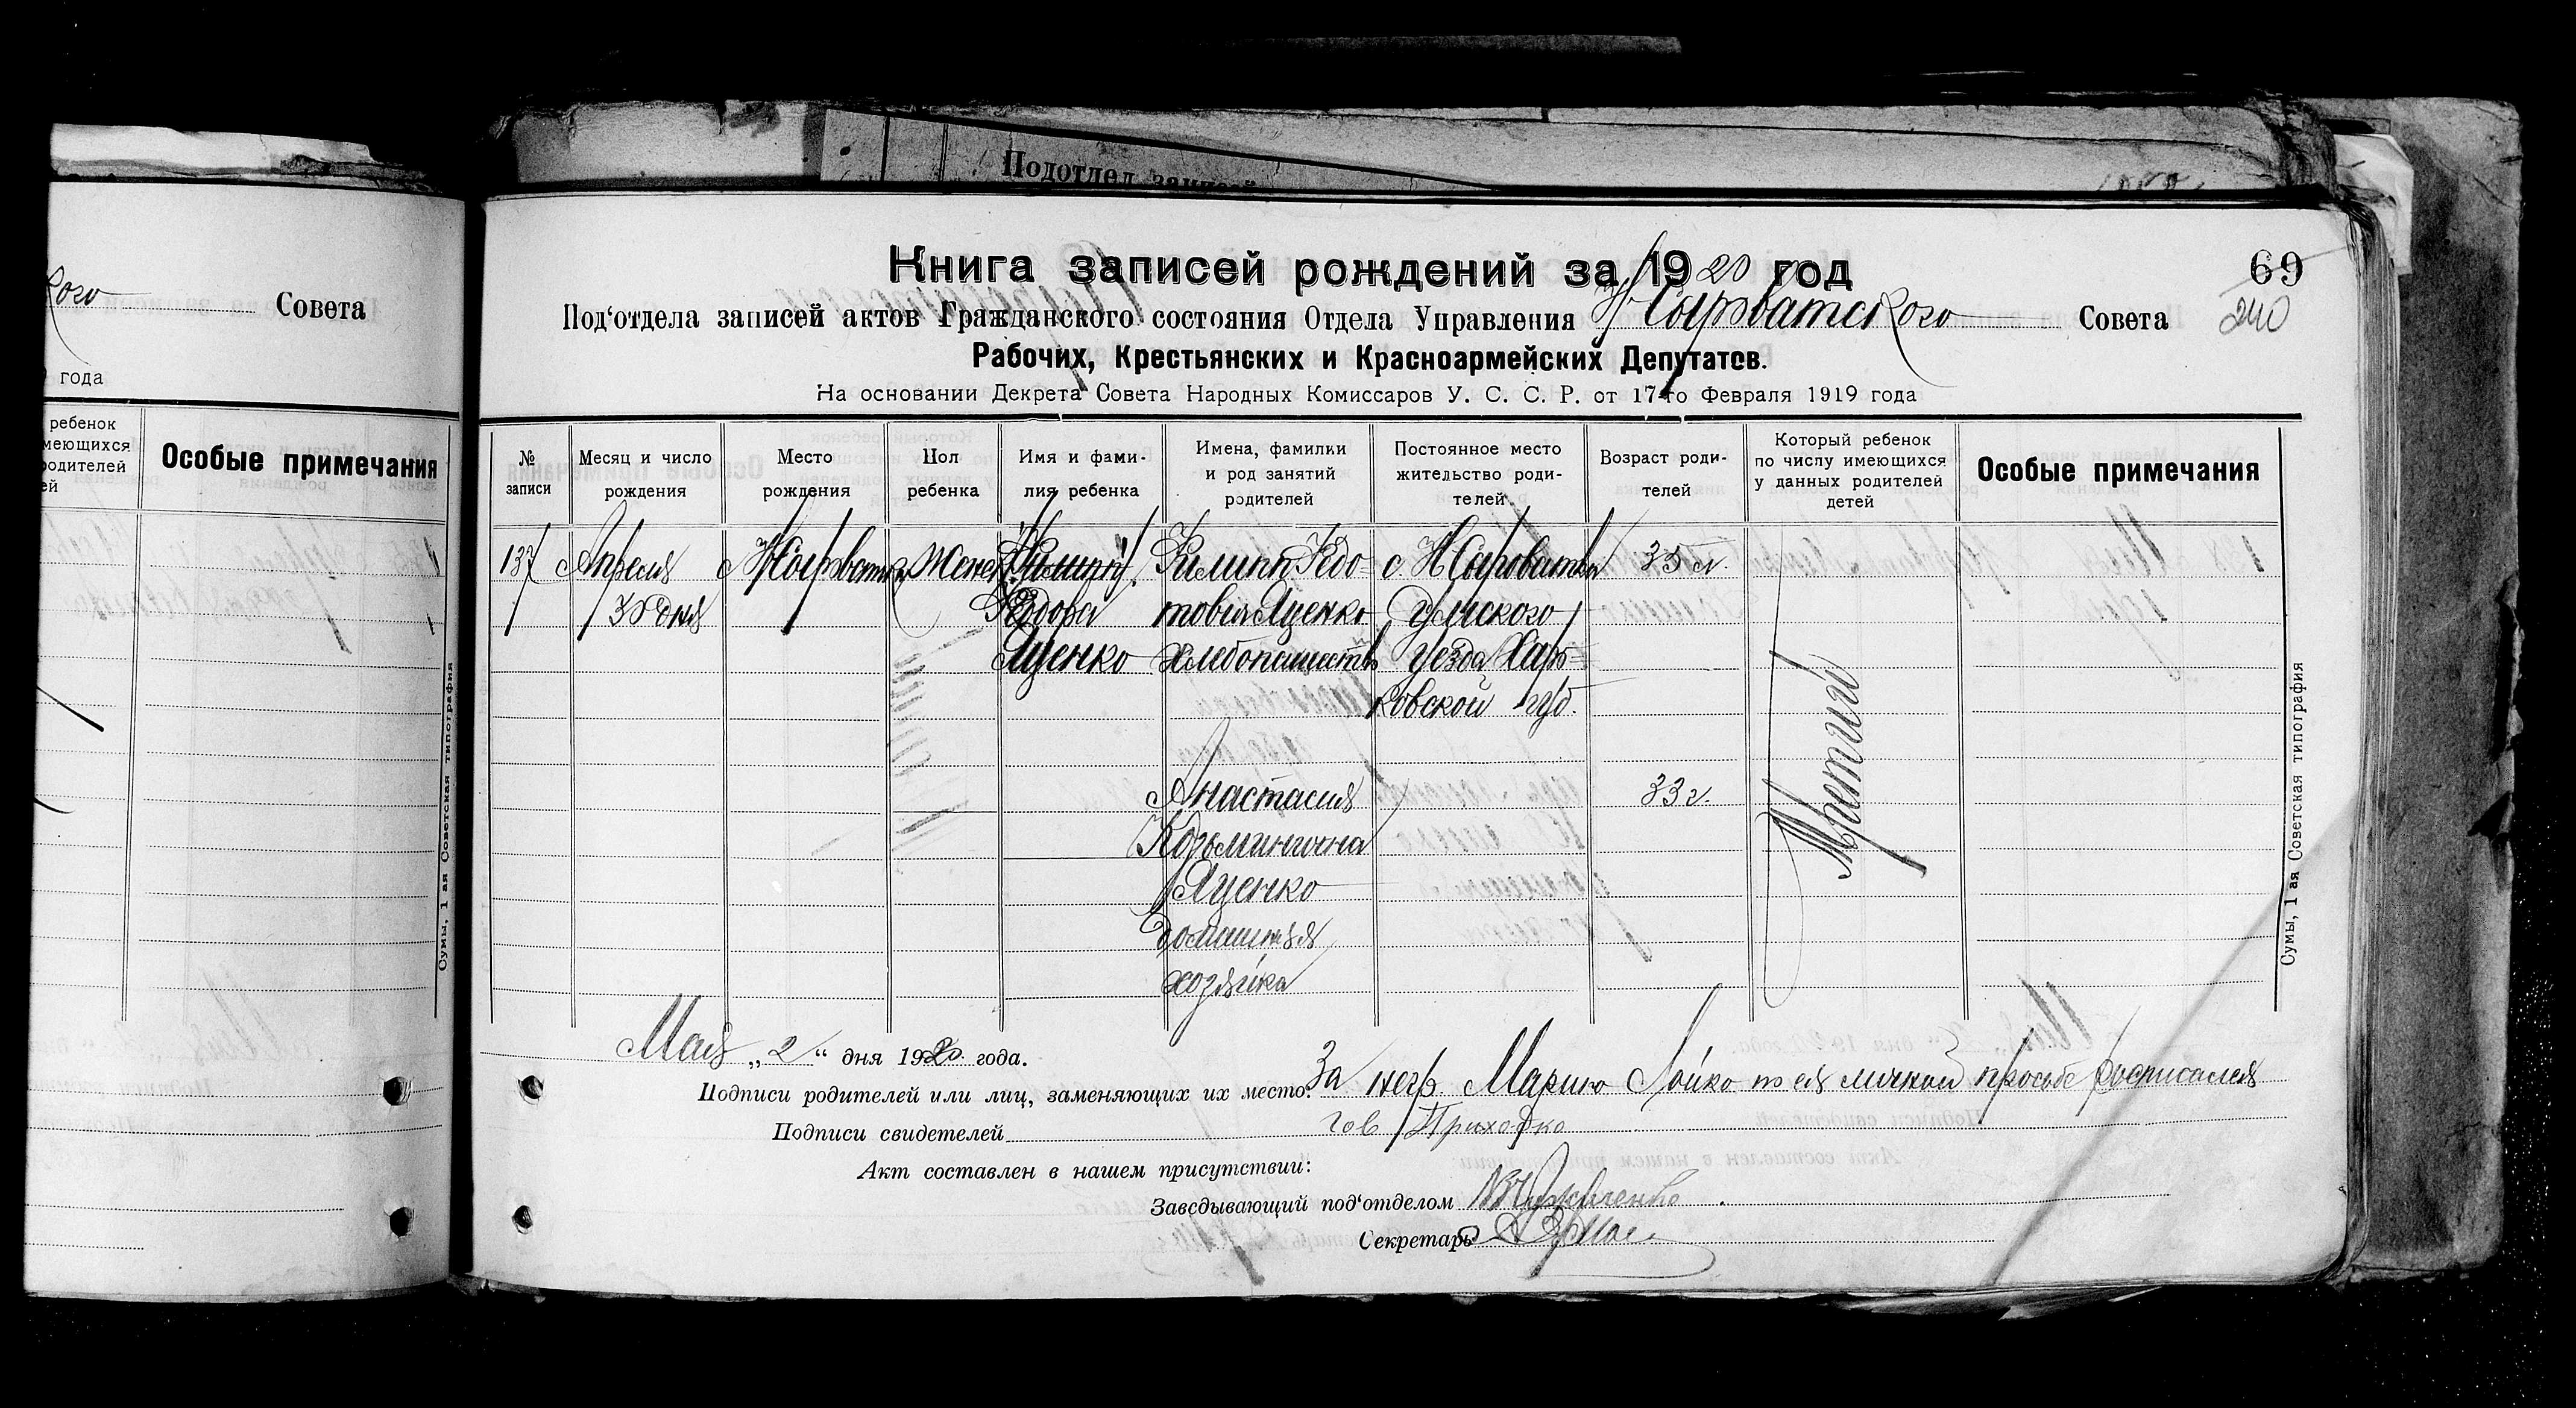 Подотдел записей
кого Совета
года
ребенок
имеющихся
родителей
ей
Особые примечания
Сумы, 1 ая Советская типография
Книга записей рождений за 1920 год
69
Под‘отдела записей актов Гражданского состояния Отдела Управления Н Сыроватского Совета
240
Рабочих, Крестьянских и Красноармейских Депутатов.
На основании Декрета Совета Народных Комиссаров У. С. С. Р. от 17-го Февраля 1919 года
№ записи
Месяц и число рождения
Место рождения
Пол ребенка
Имя и фамилия ребенка
Имена, фамилки и род занятий родителей
Постоянное место жительство родителей.
Возраст родителей
Который ребенок по числу имеющихся у данных родителей детей
Особые примечания
137
Апреля
30 дня
Н Сыроватка
Женск
Федора
Яценко
Филипп Федо-
тович Яценко
хлебопашеств
с Н Сыроватка
Сумского
уезда Харь-
ковской губ.
35 л.
Третий
Анастасия
Козьминична
Яценко
домашняя
хозяйка
33 г.
Сумы, 1 ая Советская типография
Мая „2“ дня 1920 года.
Подписи родителей или лиц, заменяющих их место: За негр. Марию Лойко по ея личной просьбе росписался
Подписи свидетелей гов Приходко
Акт составлен в нашем присутствии:
Заведывающий под‘отделом
Секретарь